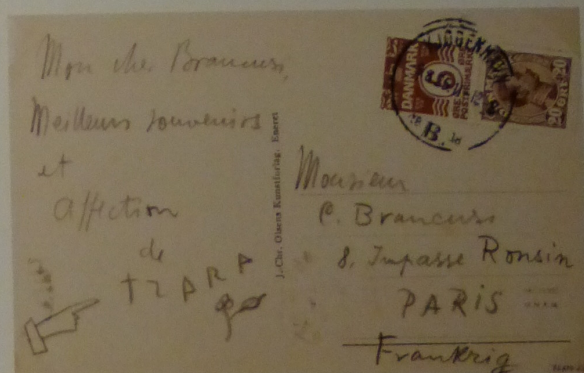 Mon cher Brancusi,
Meilleurs souvenirs
et
affection
de
TZARA
J. Chr. Olsens Kunstforlag. Eneret
DANMARK
5
ØRE
POSTFRIM.
KJØBENHAVN
B.
20 ØRE 20
Monsieur
C. Brancusi
8, Impasse Ronsin
PARIS
Frankrig